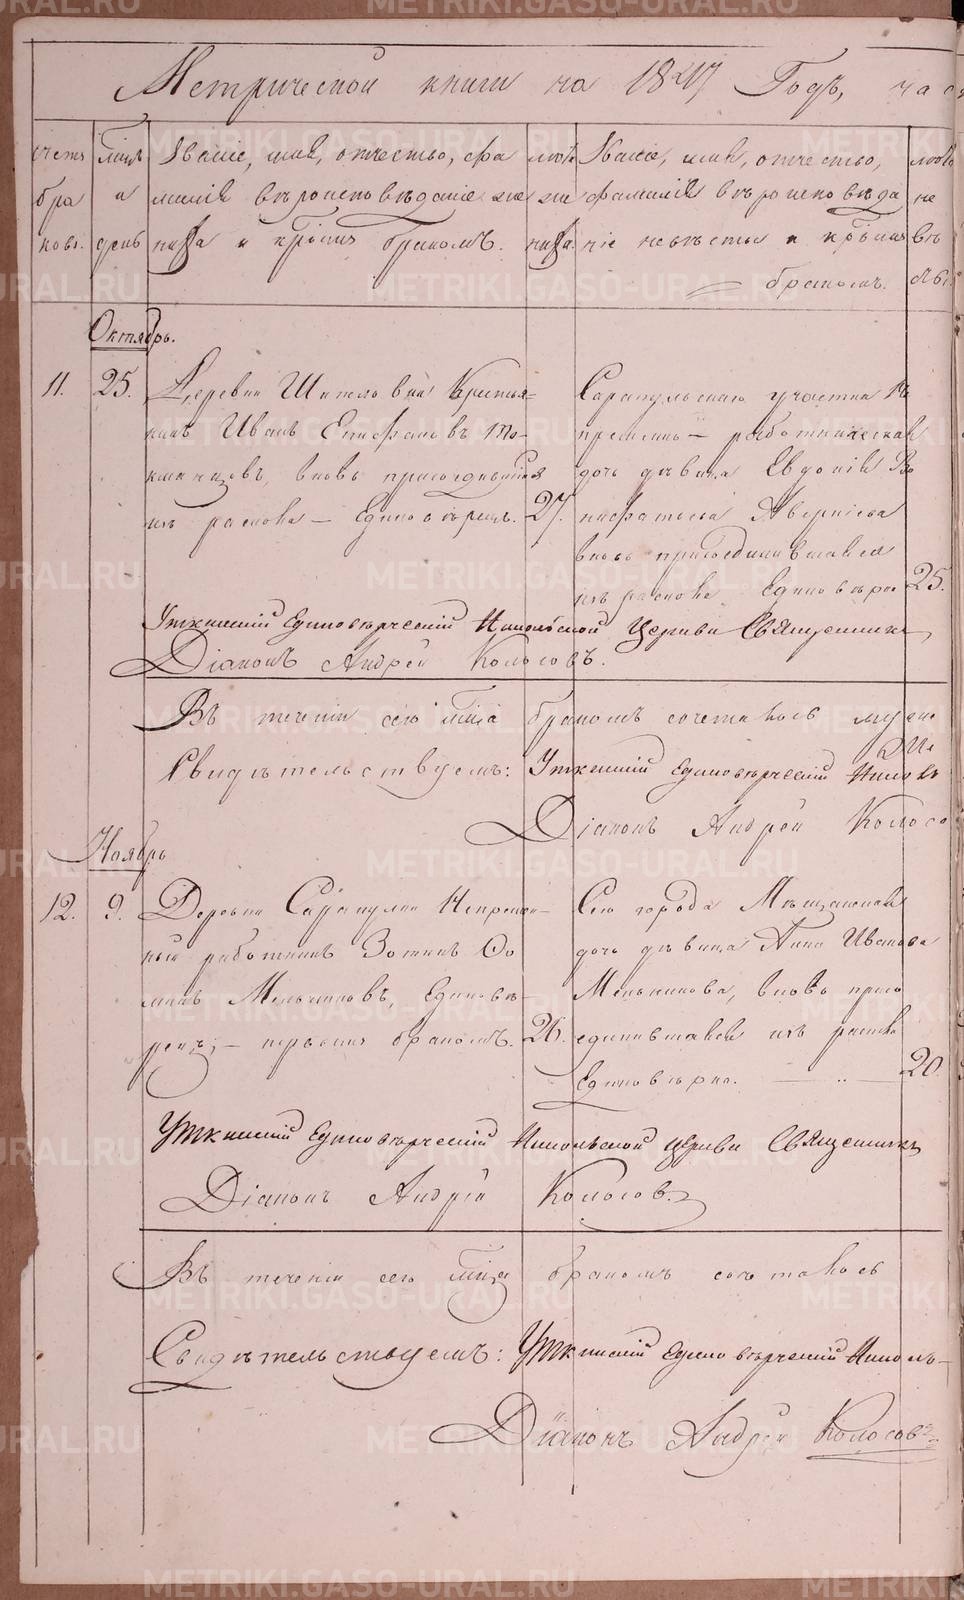 Метрической книги на 1847 Годъ, час
счетъ
бра
ковъ.
мѣсяцъ
и
день
Званіе, имя, отчество, фа
милія вѣроисповѣданіе же
ниха и кѣимъ бракомъ.
лѣта
же
ниха.
Званіе, имя, отчество,
фамилія вѣроисповѣда
ніе невѣсты и кѣимъ
бракомъ.
лѣта
не
вѣ
Октябрь.
11. 25.
Деревни Шитовки Крестья=
нинъ Иванъ Епифановъ
вновь присоединив
изъ раскола — Единовѣрецъ. 27.
Сарапульскаго участка
работническая
дочь дѣвица Евдокія
Аверкіева
вновь присоединившаяся
изъ раскола Единовѣрка 25.
Уткинскій Единовѣрческій Никольской Церкви Священникъ
Діаконъ Андрей Колосовъ.
Въ теченіи сего мѣсяца бракомъ сочеталось муже
Свидѣтельствуемъ: Уткинскій Единовѣрческій Николь
Діаконъ Андрей Колосо
Ноябрь
12. 9.
Деревни Сарапулки Непремен—
ный работникъ Зотикъ Ѳо
минъ Мельниковъ, Единовѣ—
рецъ, — первымъ бракомъ. 26.
Сего города Мѣщанская
дочь дѣвица Анна Иванова
Менькинова, вновь присо
единившаяся изъ раскола
Единовѣрка. 20.
Уткинскій Единовѣрческій Никольской церкви Священникъ
Діаконъ Андрей Колосовъ
Въ теченіи сего мѣсяца бракомъ сочеталось
Свидѣтельствуемъ: Уткинскій Единовѣрческій Николь—
Діаконъ Андрей Колосовъ
METRIKI.GASO-URAL.RU